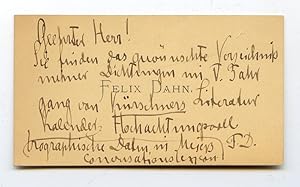 Geehrter Herr!
Sie finden das gewünschte Verzeichniß
meiner Dichtungen im V. Jahr
FELIX DAHN.
gang von Kürschners Literatur
Kalender. Hochachtungsvoll
biographische Daten in Meyers F.D.
Conversationslexicon